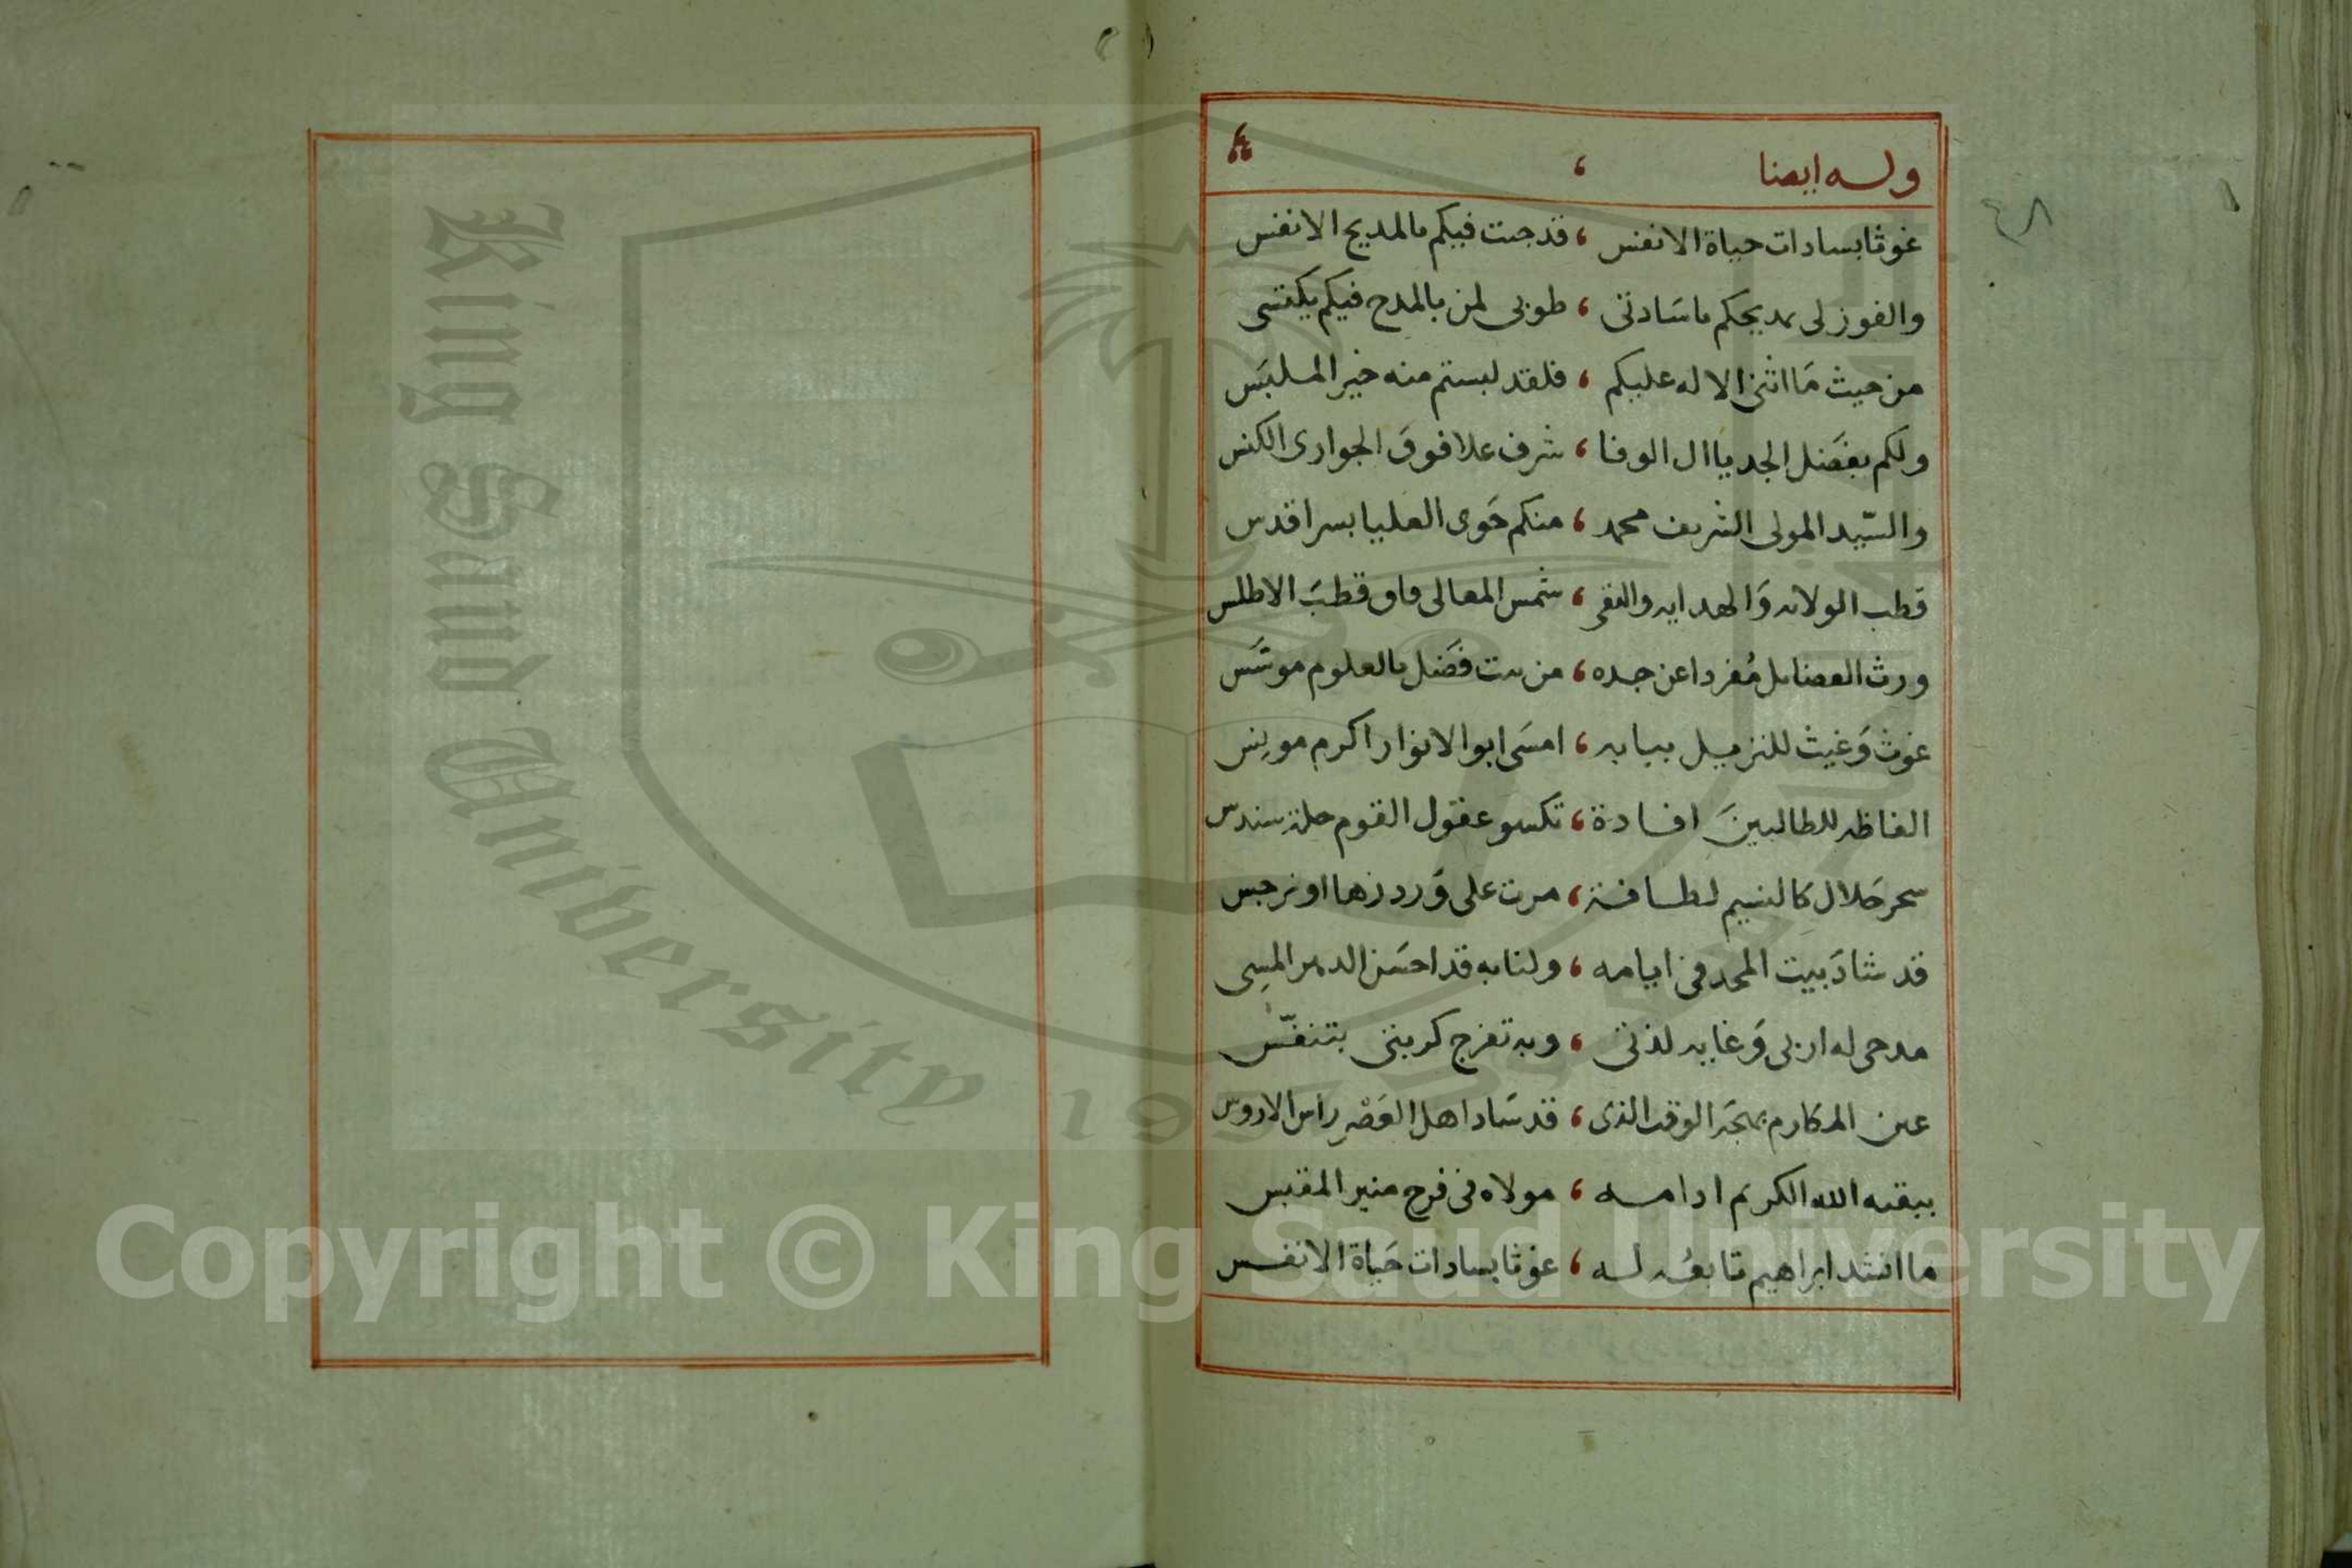 وله ايضا ،
٤٨
غوثا بسادات حياة الانفس ، قد جئت فيكم بالمديح الانفس
والفوز لى بمديحكم يا سَادتى ، طوبى لمن بالمدح فيكم يكتسى
من حيث مَا اثنى الاله عليكم ، فلقد لبستم منه خير الملبَس
ولكم بفَضل الجد يا ال الوفا ، شرف علا فوق الجوارى الكنس
والسّيد المولى الشريف محمد ، منكم حَوى العليا بسر اقدس
قطب الولايه وَالهدايه والتقى ، شمس المعالى فاق قطبَ الاطلس
ورث الفضايل مُفردا عن جده ، من بيت فَضل بالعلوم موسَّس
غوث وَغيث للنزيل ببابه ، امسَى ابو الانوار اكرم مونِس
الفاظه للطالبينَ افادة ، تكسو عقول القوم حلة سندس
سحر حَلال كالنسيم لطافة ، مرت على وَرد زها او نرجس
قد شادَ بيت المجد فى ايامه ، ولنا به قد احسَن الدهر المسِى
مدحى له اربى وَغايه لذتى ، وبه تفرج كربتى بتنفّس
عين المكارم بهجَه الوقت الذى ، قد سَاد اهل العَصْر راس الاروس
يبقيه الله الكريم ادامه ، مولاه فى فرح منير المقبس
ما انشد ابراهيم تابعُه له ، غوثا بسادات حَياة الانفس
King Saud University
Copyright © King Saud University